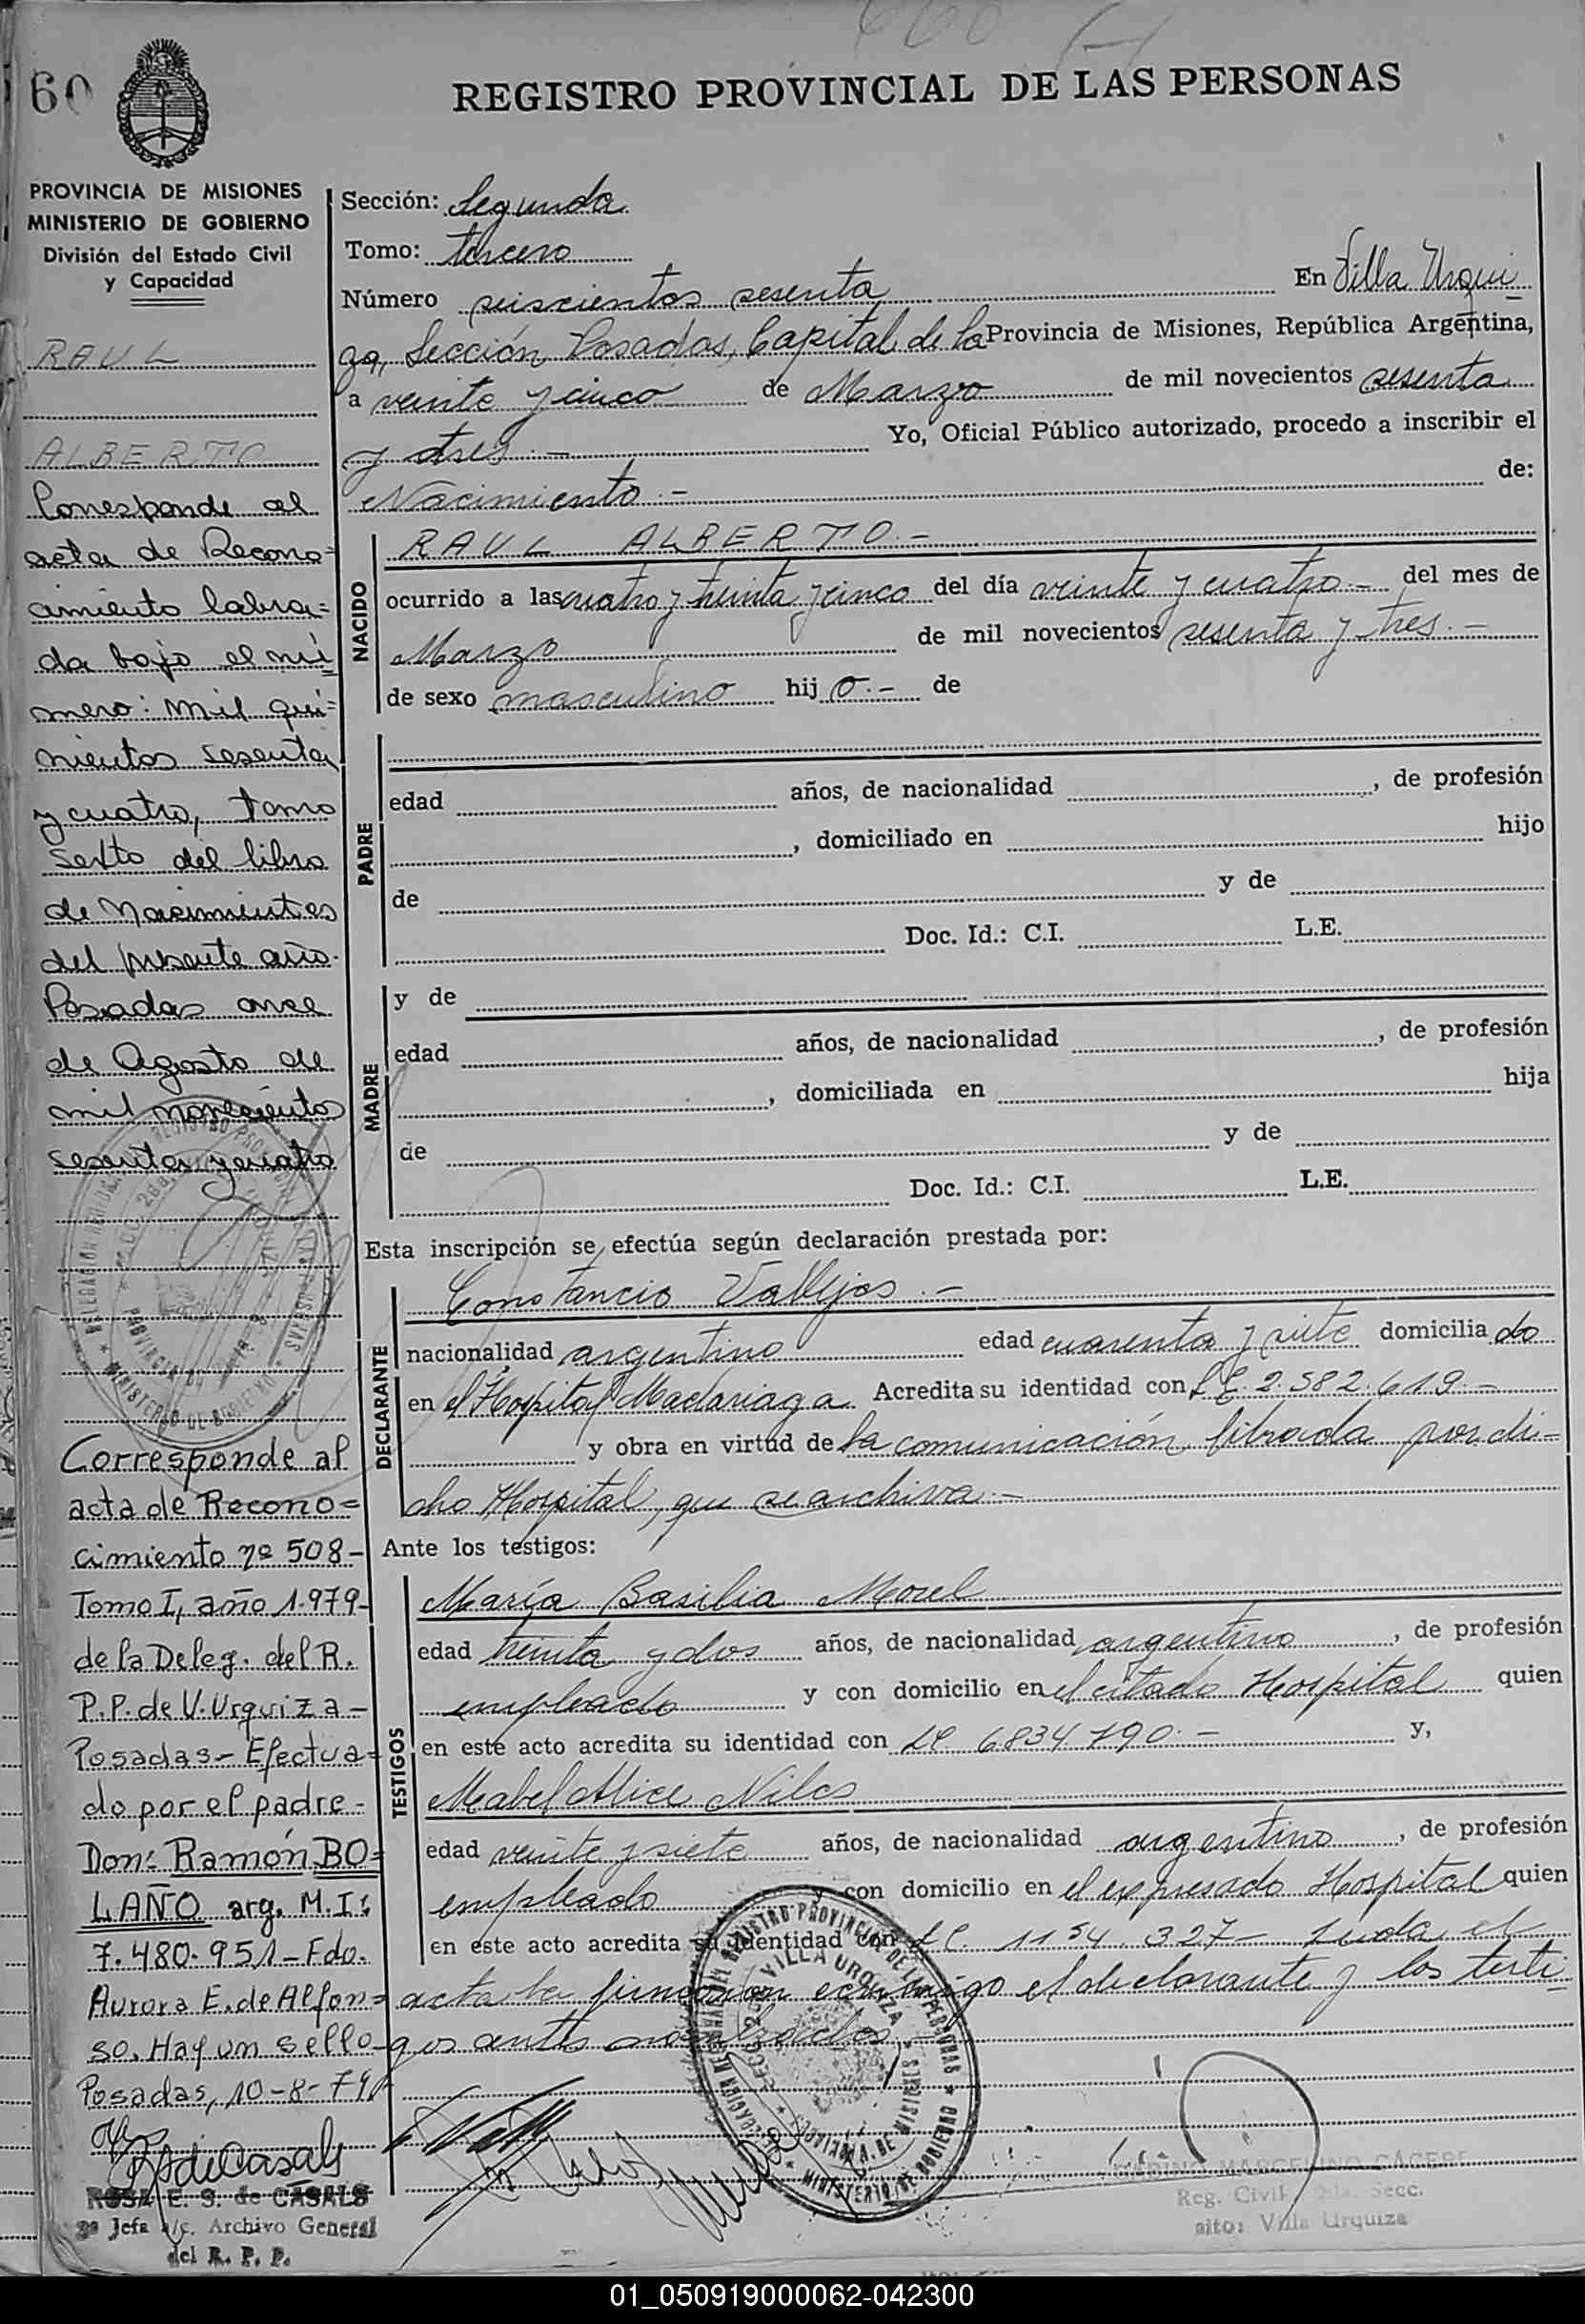 60
REGISTRO PROVINCIAL DE LAS PERSONAS
PROVINCIA DE MISIONES
MINISTERIO DE GOBIERNO
División del Estado Civil
y Capacidad
RAUL
ALBERTO
Corresponde al
acta de Recono=
cimiento labra=
da bajo el nú
mero: mil qui=
nientos sesenta
y cuatro, tomo
sexto del libro
de Nacimientos
del presente año.
Posadas once
de Agosto de
mil novecientos
sesenta y cuatro
Corresponde al
acta de Recono=
cimiento nº 508-
Tomo I, año 1.979-
de la Deleg. del R.
P.P. de V. Urquiza-
Posadas- Efectua=
do por el padre-
Don: Ramón BO=
LAÑO arg. M.I:
7.480.951- Fdo.
Aurora E. de Alfon=
so. Hay un sello-
Posadas, 10-8-79
R de Casals
ROSA E. S. de CASALS
2ª Jefa a/c. Archivo General
del R. P. P.
Sección: Segunda
Tomo: tercero
Número seiscientos sesenta En Villa Urqui
za, Sección Posadas, Capital de la Provincia de Misiones, República Argentina,
a veinte y cinco de Marzo de mil novecientos sesenta
y tres.- Yo, Oficial Público autorizado, procedo a inscribir el
Nacimiento.- de:
NACIDO
RAUL ALBERTO.-
ocurrido a las cuatro y treinta y cinco del día veinte y cuatro.- del mes de
Marzo de mil novecientos sesenta y tres.-
de sexo masculino hij o.- de
PADRE
edad años, de nacionalidad , de profesión
, domiciliado en hijo
de y de
Doc. Id.: C.I. L.E.
MADRE
y de
edad años, de nacionalidad , de profesión
, domiciliada en hija
de y de
Doc. Id.: C.I. L.E.
Esta inscripción se efectúa según declaración prestada por:
DECLARANTE
Constancio Vallejos.-
nacionalidad argentino edad cuarenta y siete domicilia do
en el Hospital Madariaga Acredita su identidad con L.E. 2.582.619.-
y obra en virtud de la comunicación librada por di=
cho Hospital, que se archiva.-
Ante los testigos:
TESTIGOS
María Basilia Morel
edad treinta y dos años, de nacionalidad argentino , de profesión
empleado y con domicilio en el citado Hospital quien
en este acto acredita su identidad con LC 6834790.- y,
Mabel Alice Niles
edad veinte y siete años, de nacionalidad argentino , de profesión
empleado y con domicilio en el expresado Hospital quien
en este acto acredita su identidad con LC. 1154.327- Leida el
acta la firmaron conmigo el declarante y los testi
gos antes
REGISTRO PROVINCIAL DE LAS PERSONAS
VILLA URQUIZA
PROVINCIA DE MISIONES
MINISTERIO DE GOBIERNO
MARCELINO CACERE
Reg. Civil 2da. Secc.
sito: Villa Urquiza
01_050919000062-042300